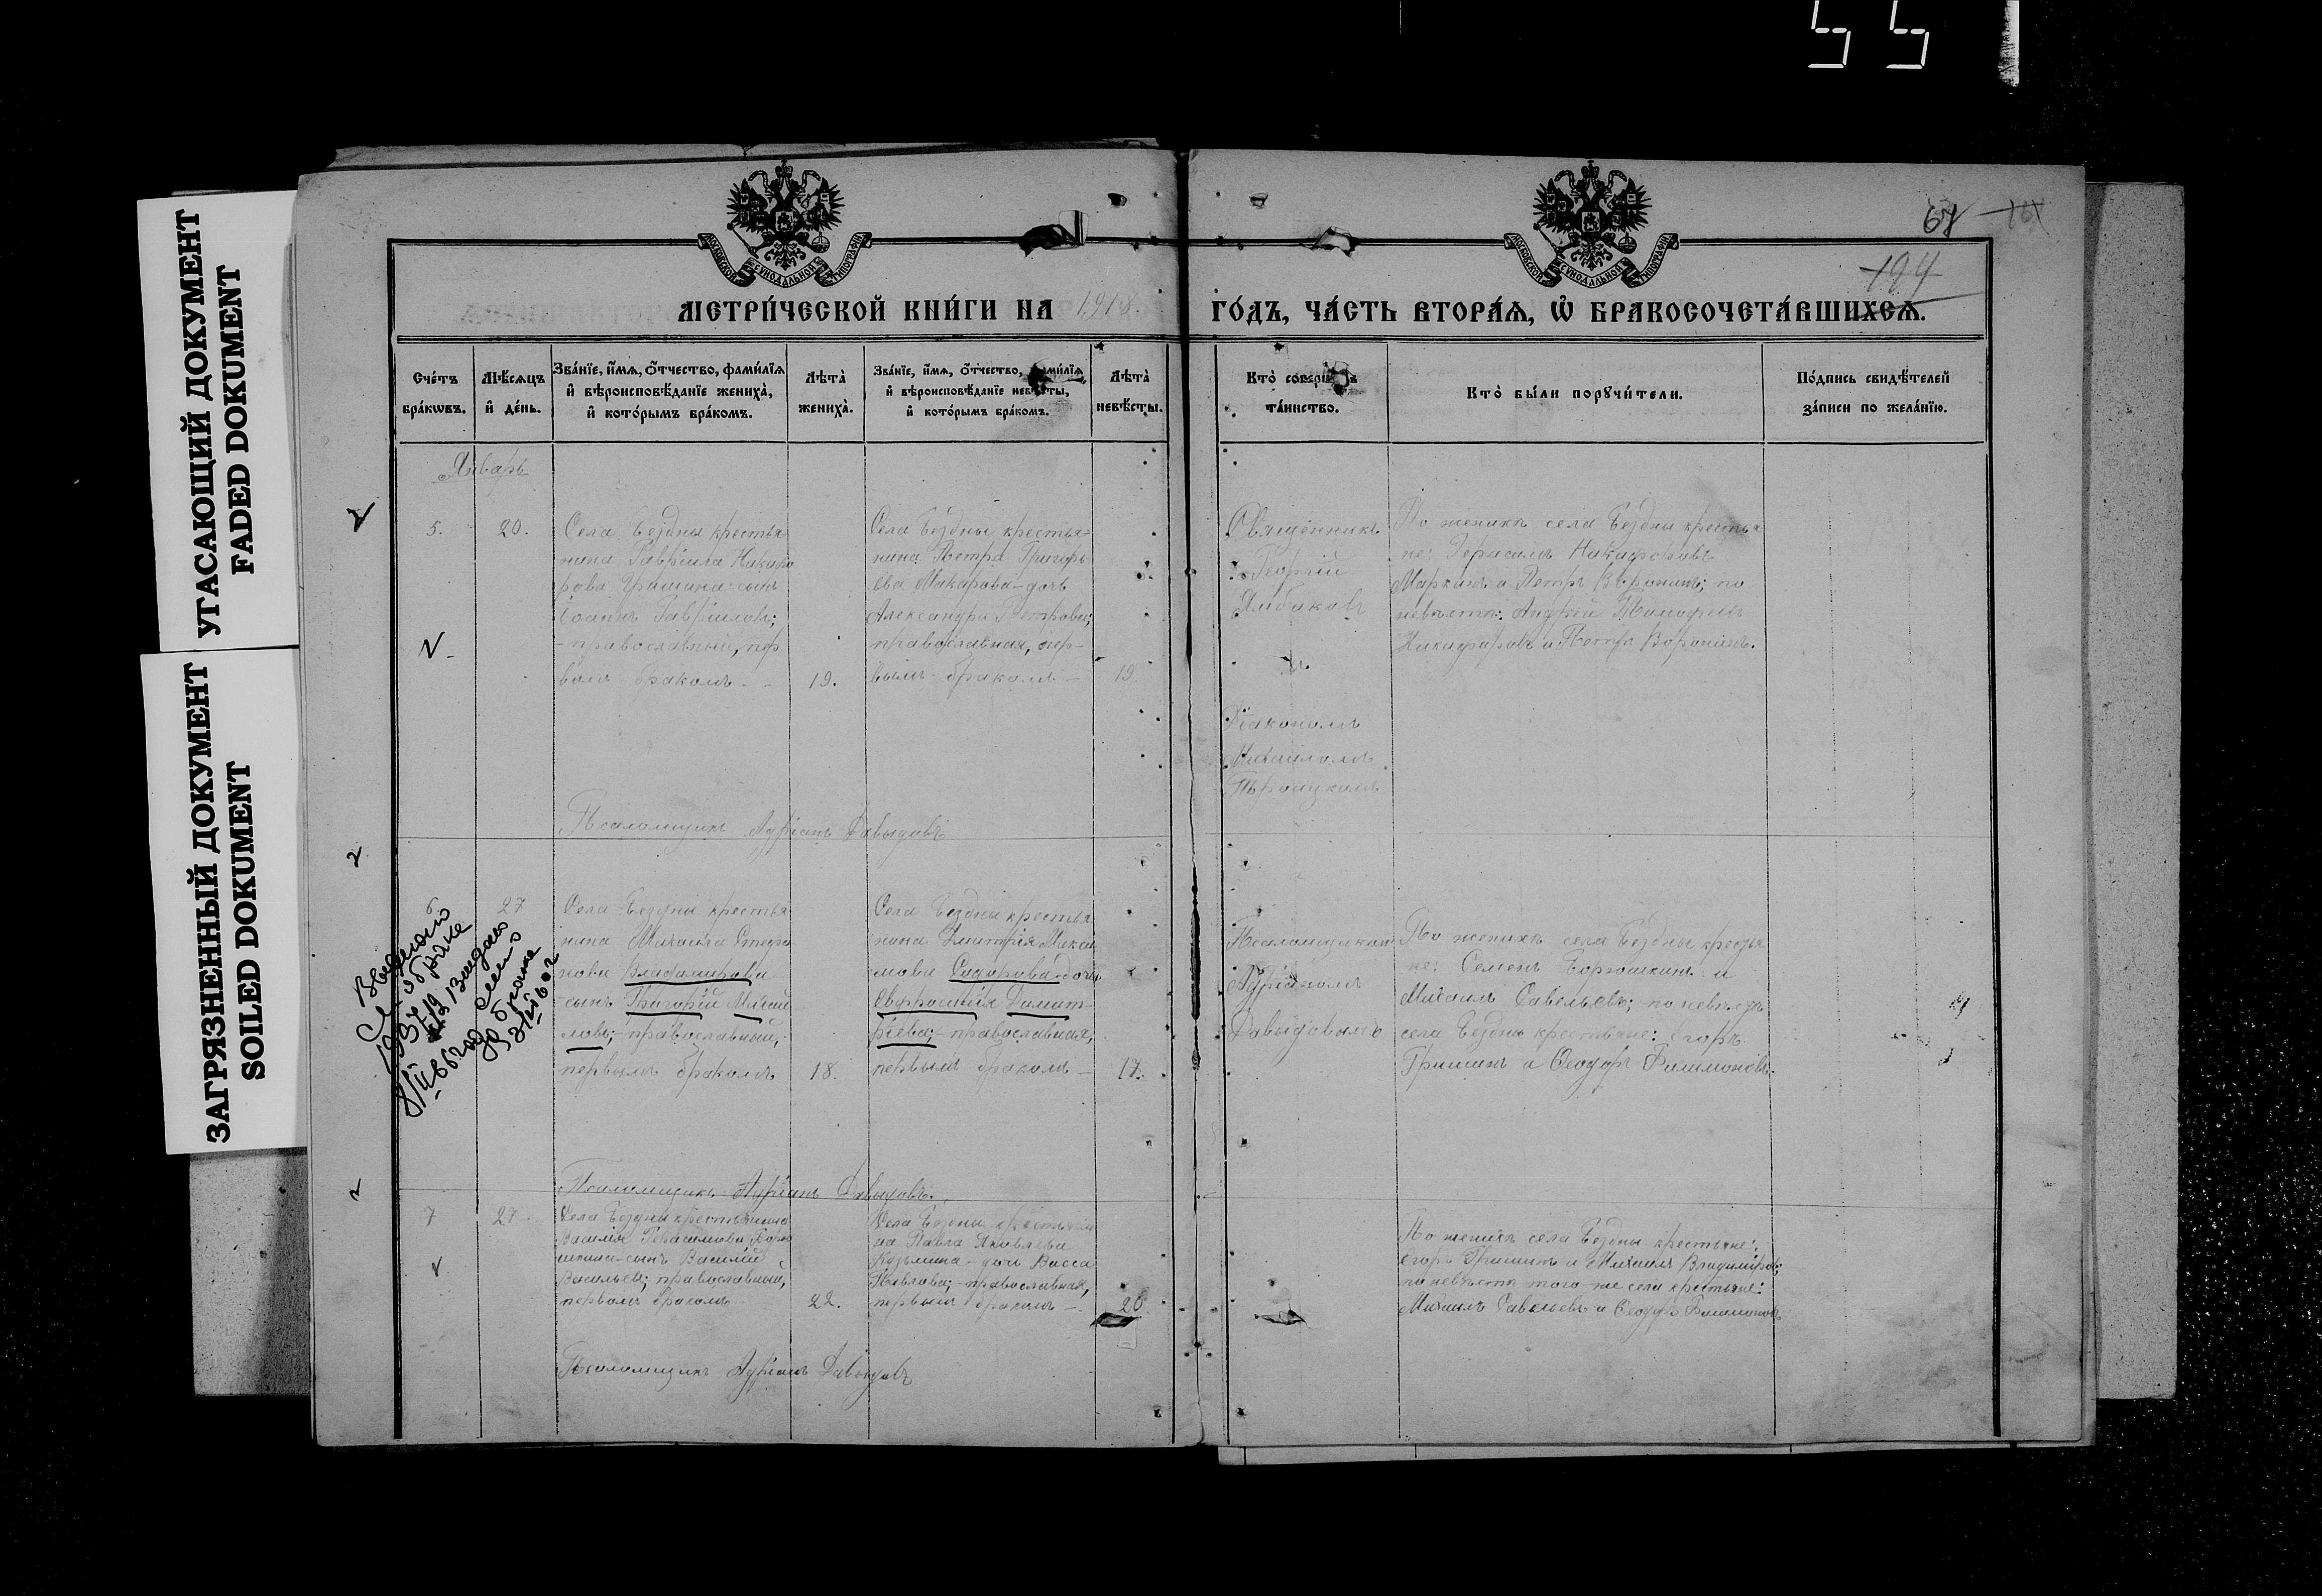 55
УГАСАЮЩИЙ ДОКУМЕНТ
FADED DOKUMENT
ЗАГРЯЗНЕННЫЙ ДОКУМЕНТ
SOILED DOKUMENT
МОСКОВСКОЙ СѴНОДАЛЬНОЙ ТИПОГРАФІИ
МОСКОВСКОЙ СѴНОДАЛЬНОЙ ТИПОГРАФІИ
194
МЕТРИ́ЧЕСКОЙ КНИ́ГИ НА 1918.
ГО́ДЪ, ЧА́СТЬ ВТОРА́Ѧ, Ѡ҆ БРАКОСОЧЕТА́ВШИХСѦ.
Сче́тъ
бра́кѡвъ.
Мѣ́сѧцъ
и҆ де́нь.
Зва́нїе, и҆́мѧ, ѻ҆́тчество, фами́лїѧ
и҆ вѣроисповѣ́данїе жениха̀,
и҆ кото́рымъ бра́комъ.
Лѣта̀
жениха̀.
Зва́нїе, и҆́мѧ, ѻ҆́тчество, фами́лїѧ
и҆ вѣроисповѣ́данїе невѣ́сты,
и҆ кото́рымъ бра́комъ.
Лѣта̀
невѣ́сты.
Кто̀ соверша́лъ
та́инство.
Кто̀ бы́ли порꙋчи́тели.
По́дпись свидѣ́телей
за́писи по жела́нїю.
Январь
5.
20.
Села Бездны крестья
нина Гавріила Никифо
рова Гришина сынъ
Іоаннъ Гавріиловъ;
православный, пер
вымъ бракомъ
19.
Села Бездны крестья-
нина Петра Григорь
ева Макарова-дочь
Александра Петрова;
православная, пер-
вымъ бракомъ
19
Священникъ
Георгій
и
Діакономъ
Михаиломъ
По женихѣ села Бездны крестья
не: Герасимъ Никифоровъ
Маркинъ и Петръ Воронинъ; по
невѣстѣ: Андрей Тимофеевъ
Никифоровъ и Петръ Воронинъ.
Псаломщикъ Адріанъ Давыдовъ
6
27
Села Бездны крестья
нина Михаила Стефа
нова Владимирова
сынъ Григорій Михаи
ловъ; православный,
первымъ бракомъ
18.
Села Бездны крестья
нина Димитрія Макси
мова Сидорова-дочь
Евфросинія Димит-
ріева; - православная,
первымъ бракомъ
17.
Псаломщикомъ
Адріаномъ
Давыдовымъ
По женихѣ села Бездны крестья
не: Семенъ Горюшкинъ и
Михаилъ Савельевъ; по невѣстѣ
села Бездны крестьяне: Егоръ
Гришинъ и Ѳеодоръ Филимоновъ.
Псаломщикъ Адріанъ Давыдовъ.
7
27.
Села Бездны крестьянина
Василія Герасимова Горю
шкина-сынъ Василій
Васильевъ; православный,
первымъ бракомъ
22.
Села Бездны крестьяни
на Павла Яковлева
Кузьмина - дочь Васса
Павлова; - православная,
первымъ бракомъ
20
По женихѣ села Бездны крестьяне:
Егоръ Гришинъ и Михаилъ Владимировъ;
по невѣстѣ того же села крестьяне:
Михаилъ Савельевъ и Ѳеодоръ Филимоновъ
Псаломщикъ Адріанъ Давыдовъ